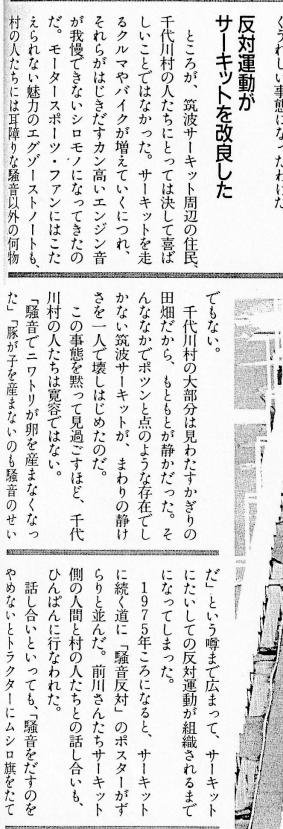 くうれしい事態になったわけだ
反対運動が
サーキットを改良した
ところが、筑波サーキット周辺の住民、
千代川村の人たちにとっては決して喜ば
しいことではなかった。サーキットを走
るクルマやバイクが増えていくにつれ、
それらがはじきだすカン高いエンジン音
が我慢できないシロモノになってきたの
だ。モータースポーツ・ファンにはこた
えられない魅力のエグゾーストノートも、
村の人たちには耳障りな騒音以外の何物
でもない。
千代川村の大部分は見わたすかぎりの
田畑だから、もともとが静かだった。そ
んななかでポツンと点のような存在でし
かない筑波サーキットが、まわりの静け
さを一人で壊しはじめたのだ。
この事態を黙って見過ごすほど、千代
川村の人たちは寛容ではない。
「騒音でニワトリが卵を産まなくなっ
た」「豚が子を産まないのも騒音のせい
だ」という噂まで広まって、サーキット
にたいしての反対運動が組織されるまで
になってしまった。
1975年ころになると、サーキット
に続く道に「騒音反対」のポスターがず
らりと並んだ。前川さんたちサーキット
側の人間と村の人たちとの話し合いも、
ひんぱんに行なわれた。
話し合いといっても、「騒音をだすのを
やめないとトラクターにムシロ旗をたて